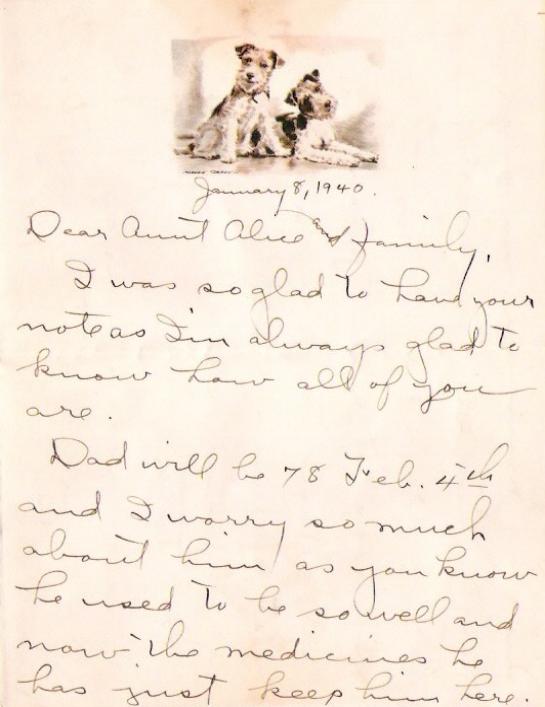 January 8, 1940.
Dear Aunt Alice and family,
I was so glad to have your
note as I'm always glad to
know how all of you
are.
Dad will be 78 Feb. 4th
and I worry so much
about him as you know
he used to be so well and
now the medicines he
has just keep him here.